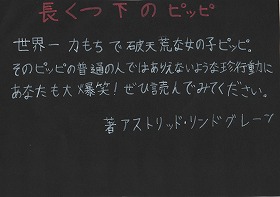 長くつ下のピッピ
世界一力もちで破天荒な女の子ピッピ。
そのピッピの普通の人ではありえないような珍行動に
あなたも大爆笑!ぜひ読んでみてください。
著アストリッド・リンドグレーン